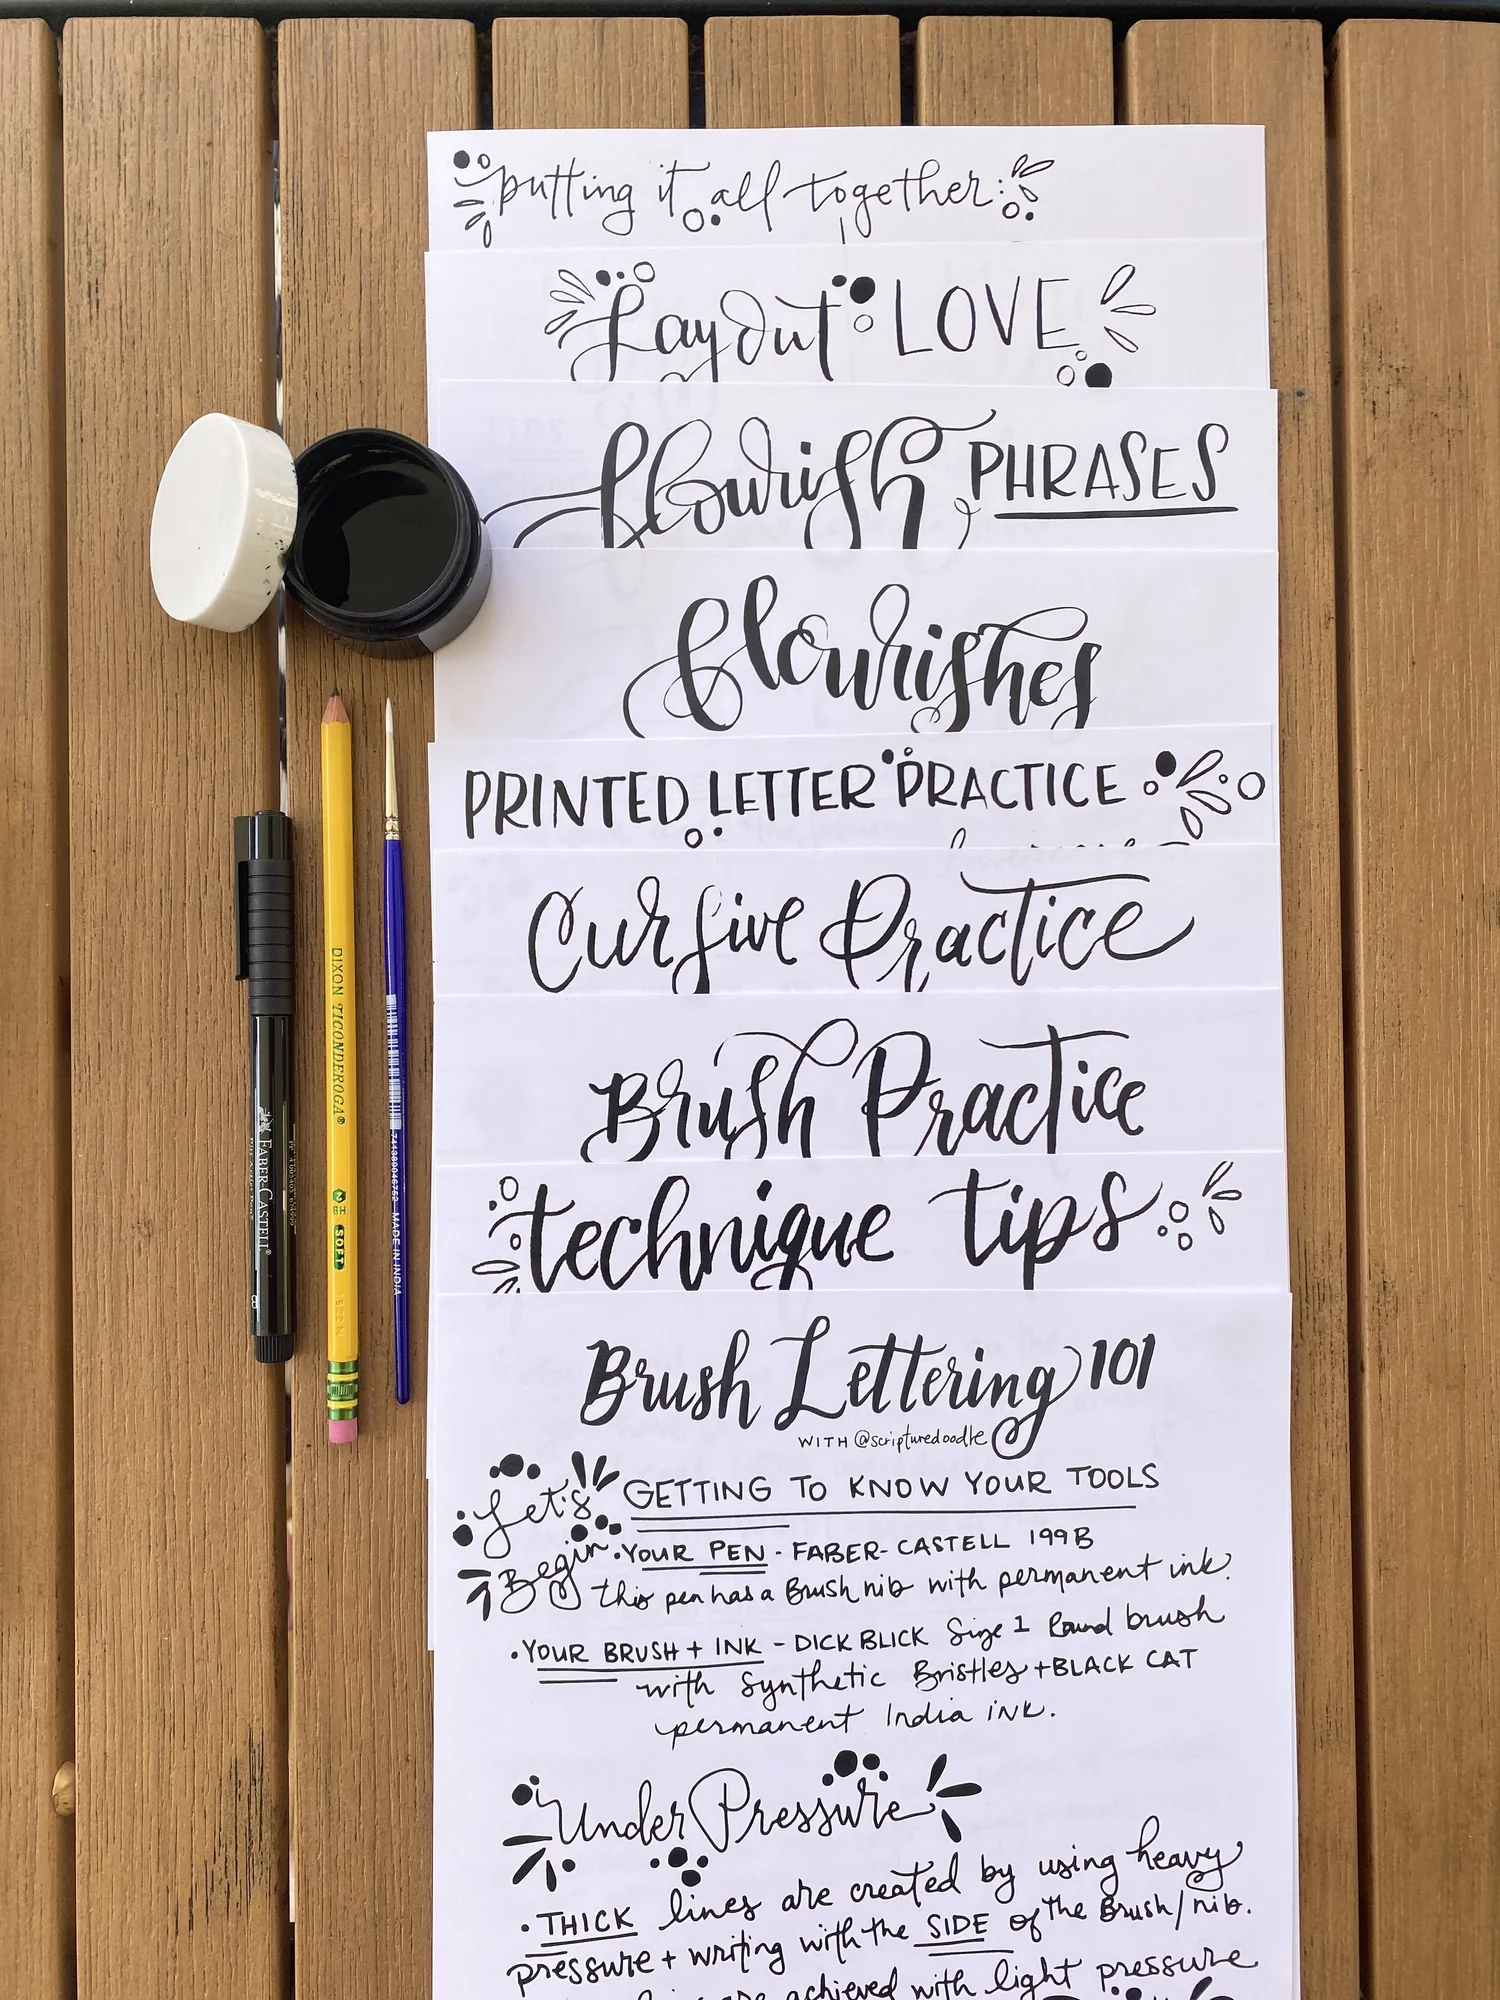 putting it all together:
Layout LOVE
flourish PHRASES
flourishes
PRINTED LETTER PRACTICE
Cursive Practice
Brush Practice
technique tips
Brush Lettering 101
WITH @scripturedoodle
Let's Begin
GETTING TO KNOW YOUR TOOLS
• YOUR PEN - FABER-CASTELL 199B
this pen has a Brush nib with permanent ink.
• YOUR BRUSH + INK - DICK BLICK Size 1 Round brush
with Synthetic Bristles + BLACK CAT
permanent India ink.
Under Pressure
• THICK lines are created by using heavy
pressure + writing with the SIDE of the Brush/nib.
achieved with light pressure
FABER-CASTELL
B
DIXON TICONDEROGA®
HB
SOFT
741389046752 MADE IN INDIA